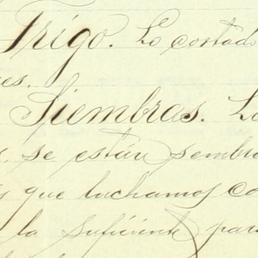 Trigo. Lo cortado
es.
Siembras. La
se están sembra
que luchamos co
la suficiente para